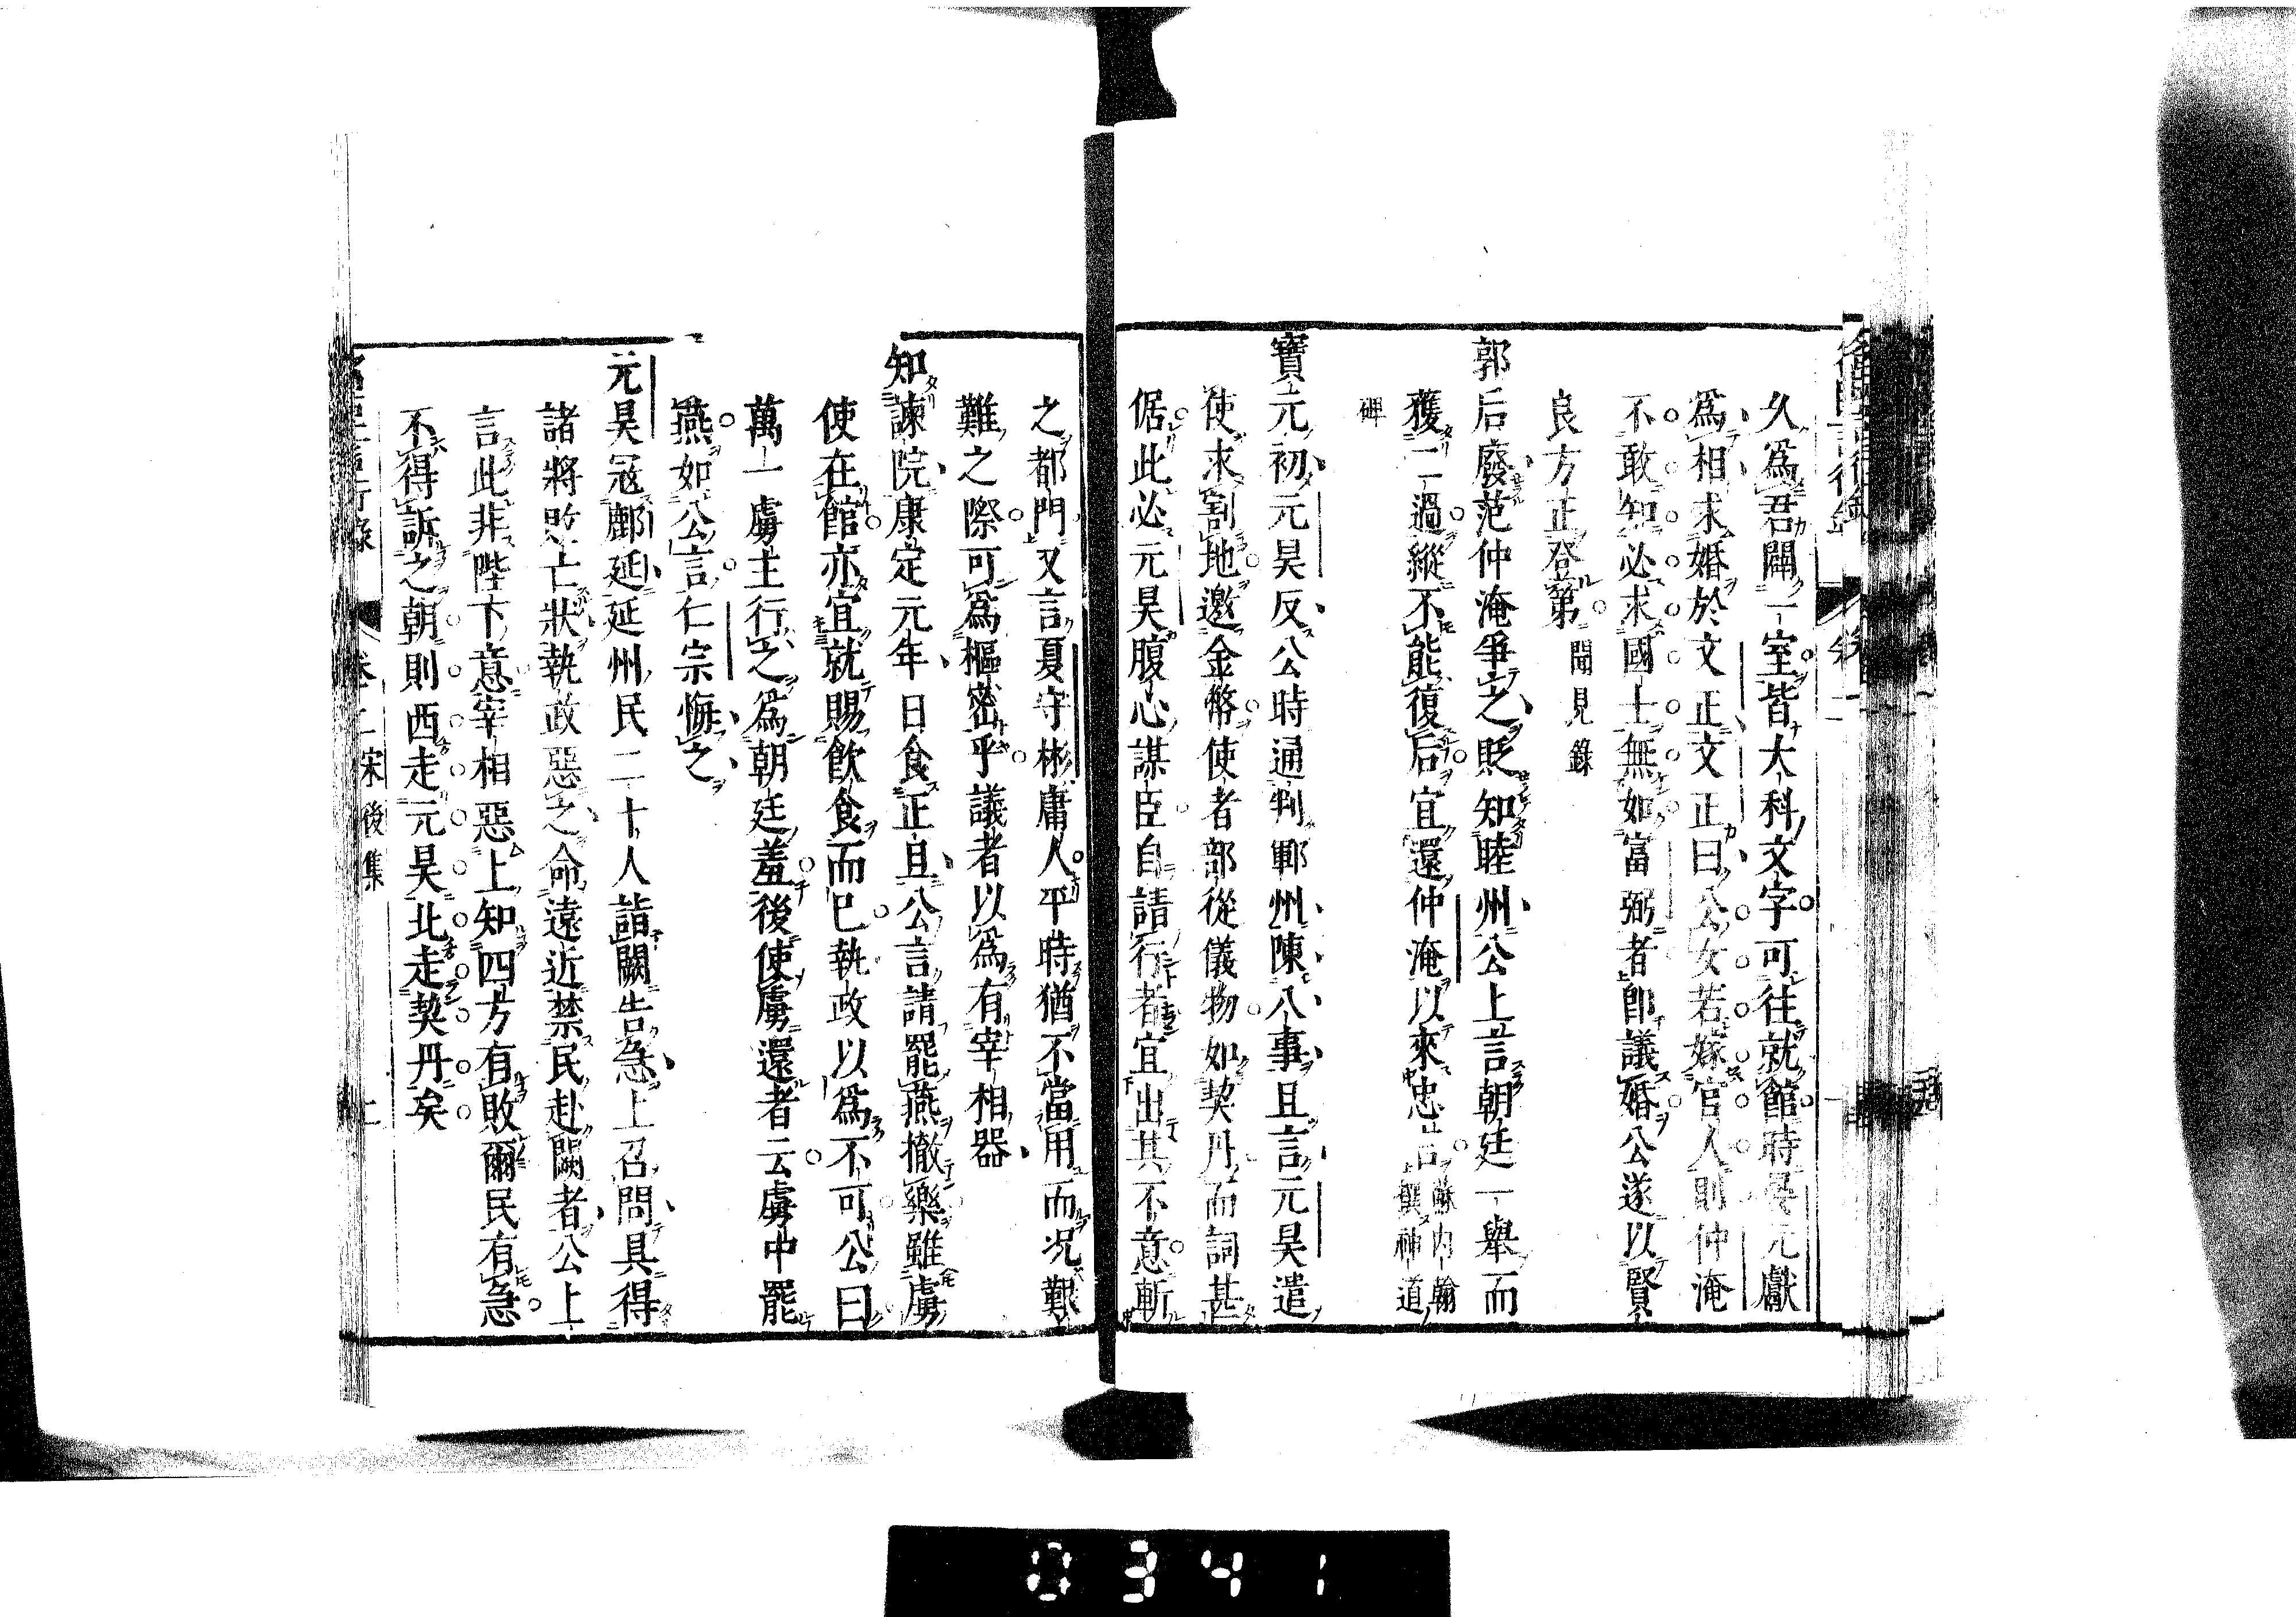 久爲君闢一室皆大科文字可往就館時晏元獻
爲相求婚於文正文正曰公女若嫁官人則仲淹
不敢知必求國士無如富弼者卽議婚公遂以賢
良方正登第 聞見錄
郭后廢范仲淹爭之貶知睦州公上言朝廷一舉而
獲二過縱不能復后宜還仲淹以來忠言 蘇內翰撰神道
碑
寶元初元昊反公時通判鄆州陳八事且言元昊遣
使求割地邀金幣使者部從儀物如契丹而詞甚
倨此必元昊腹心謀臣自請行者宜出其不意斬
之都門又言夏守彬庸人平時猶不當用而況艱
難之際可爲樞密乎議者以爲有宰相器
知諫院康定元年日食正旦公言請罷燕撤樂雖虜
使在館亦宜就賜飲食而已執政以爲不可公曰
萬一虜主行之爲朝廷羞後使虜還者云虜中罷
燕如公言仁宗悔之
元昊寇鄜延延州民二十人詣闕告急上召問具得
諸將敗亡狀執政惡之命遠近禁民赴闕者公上
言此非陛下意宰相惡上知四方有敗爾民有急
不得訴之朝則西走元昊北走契丹矣
宋後集
0341